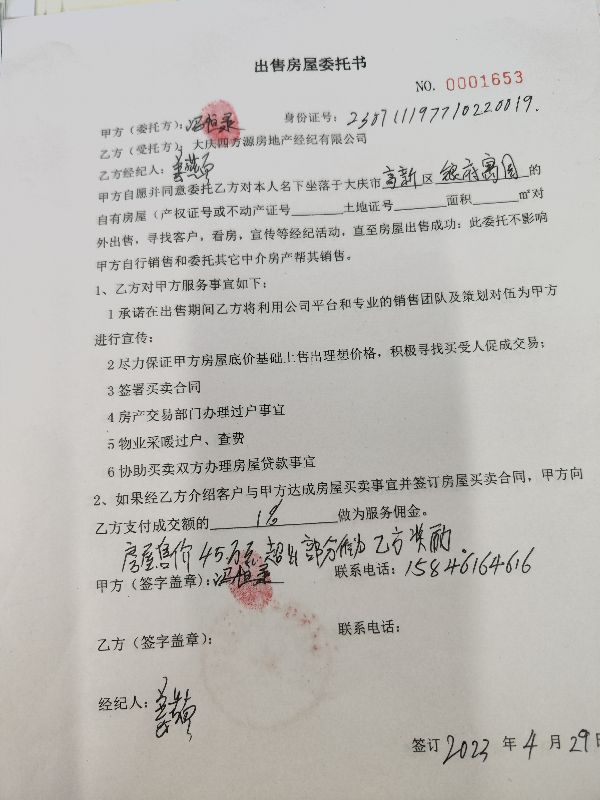 出售房屋委托书
NO. 0001653
甲方（委托方）：冯恒录 身份证号：230711197710220019.
乙方（受托方）：大庆四方源房地产经纪有限公司
乙方经纪人：姜
甲方自愿并同意委托乙方对本人名下坐落于大庆市高新区绿府寓园的
自有房屋（产权证号或不动产证号______土地证号______面积______㎡对
外出售，寻找客户，看房，宣传等经纪活动，直至房屋出售成功；此委托不影响
甲方自行销售和委托其它中介房产帮其销售。
1、乙方对甲方服务事宜如下：
1 承诺在出售期间乙方将利用公司平台和专业的销售团队及策划对伍为甲方
进行宣传；
2 尽力保证甲方房屋底价基础上售出理想价格，积极寻找买受人促成交易；
3 签署买卖合同
4 房产交易部门办理过户事宜
5 物业采暖过户、查费
6 协助买卖双方办理房屋贷款事宜
2、如果经乙方介绍客户与甲方达成房屋买卖事宜并签订房屋买卖合同，甲方向
乙方支付成交额的1%做为服务佣金。
房屋售价45万元超出部分做为乙方奖励。
甲方（签字盖章）：冯恒录 联系电话：15846164616
乙方（签字盖章）： 联系电话：
经纪人：姜
签订 2023 年 4 月 29日